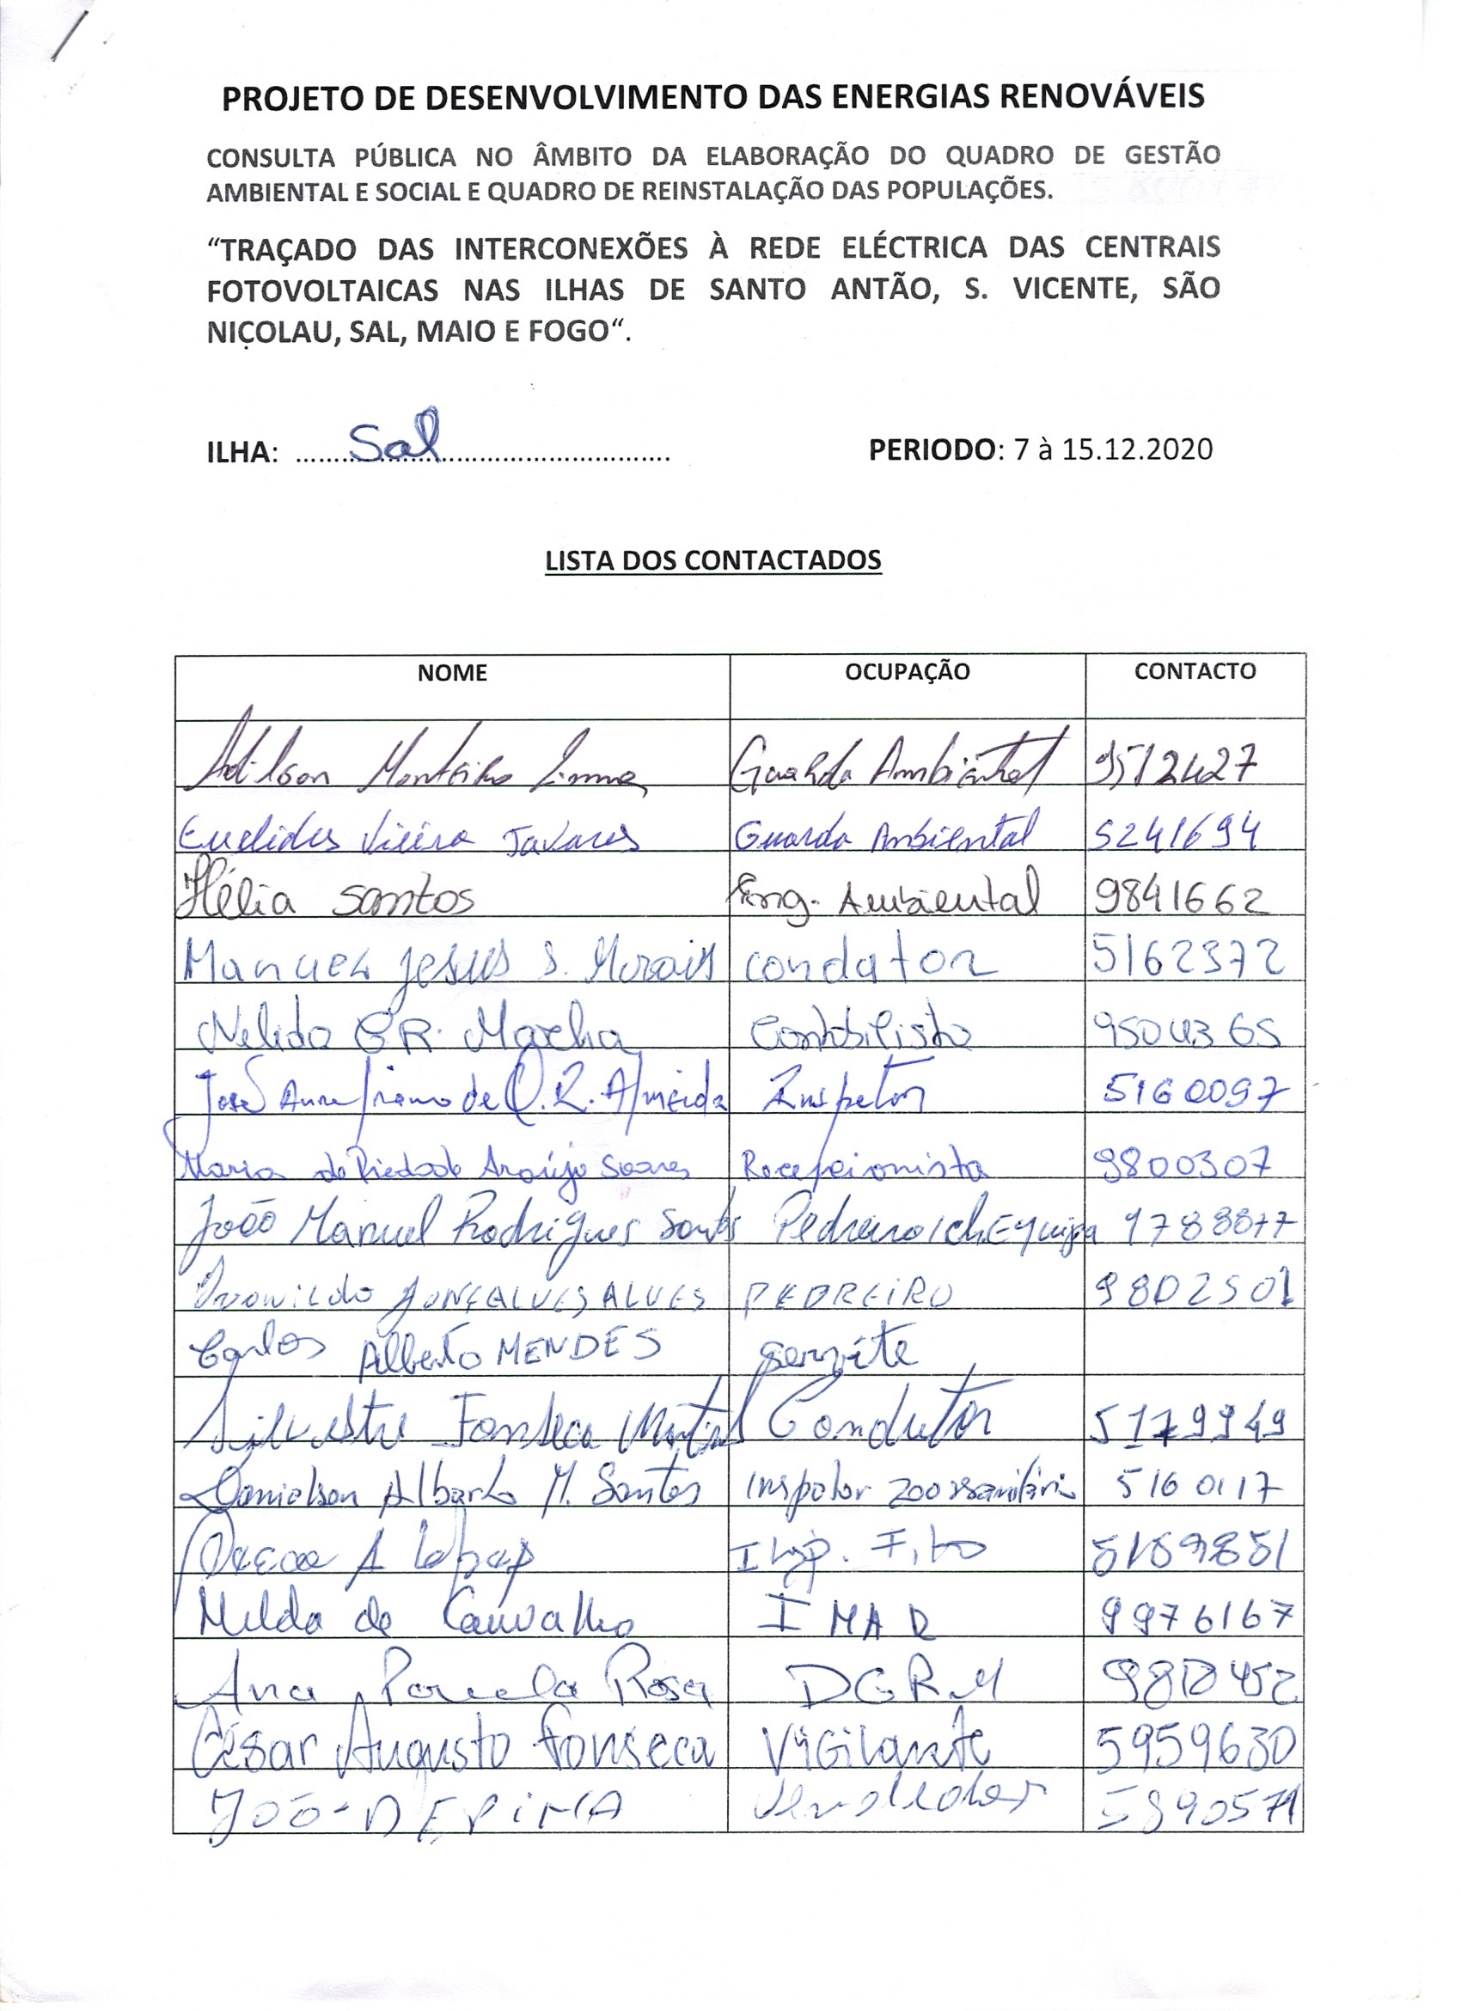 PROJETO DE DESENVOLVIMENTO DAS ENERGIAS RENOVÁVEIS
CONSULTA PÚBLICA NO ÂMBITO DA ELABORAÇÃO DO QUADRO DE GESTÃO
AMBIENTAL E SOCIAL E QUADRO DE REINSTALAÇÃO DAS POPULAÇÕES.
“TRAÇADO DAS INTERCONEXÕES À REDE ELÉCTRICA DAS CENTRAIS
FOTOVOLTAICAS NAS ILHAS DE SANTO ANTÃO, S. VICENTE, SÃO
NICOLAU, SAL, MAIO E FOGO“.
ILHA: Sal PERIODO: 7 à 15.12.2020
LISTA DOS CONTACTADOS
NOME OCUPAÇÃO CONTACTO
Adilson Monteiro Guarda Ambiental 9512427
Euclides Vieira Tavares Guarda Ambiental 5241694
Hélia Santos Eng. Ambiental 9841662
Manuel Jesus S. Morais condator 5162372
Nelida Contabilista 9504365
José de O. R. Almeida Inspetor 5160097
Maria da Piedade Araújo Soares Recepcionista 9800307
João Manuel Rodrigues Santos Pedreiro/ch.Equipa 9788877
GONÇALVES ALVES PEDREIRO 9802501
Carlos Alberto MENDES servite
Silvestre Fonseca Martins Condutor 5179949
Danielson Alberto M. Santos Inspetor zoossanitário 5160117
A Insp. Fito 5189851
Nilda de Carvalho IMAR 9976167
Ana Paula Rosa DGRM
César Augusto Fonseca ViGilante 5959630
JOÓ-DEPINA Vendedor 5890571